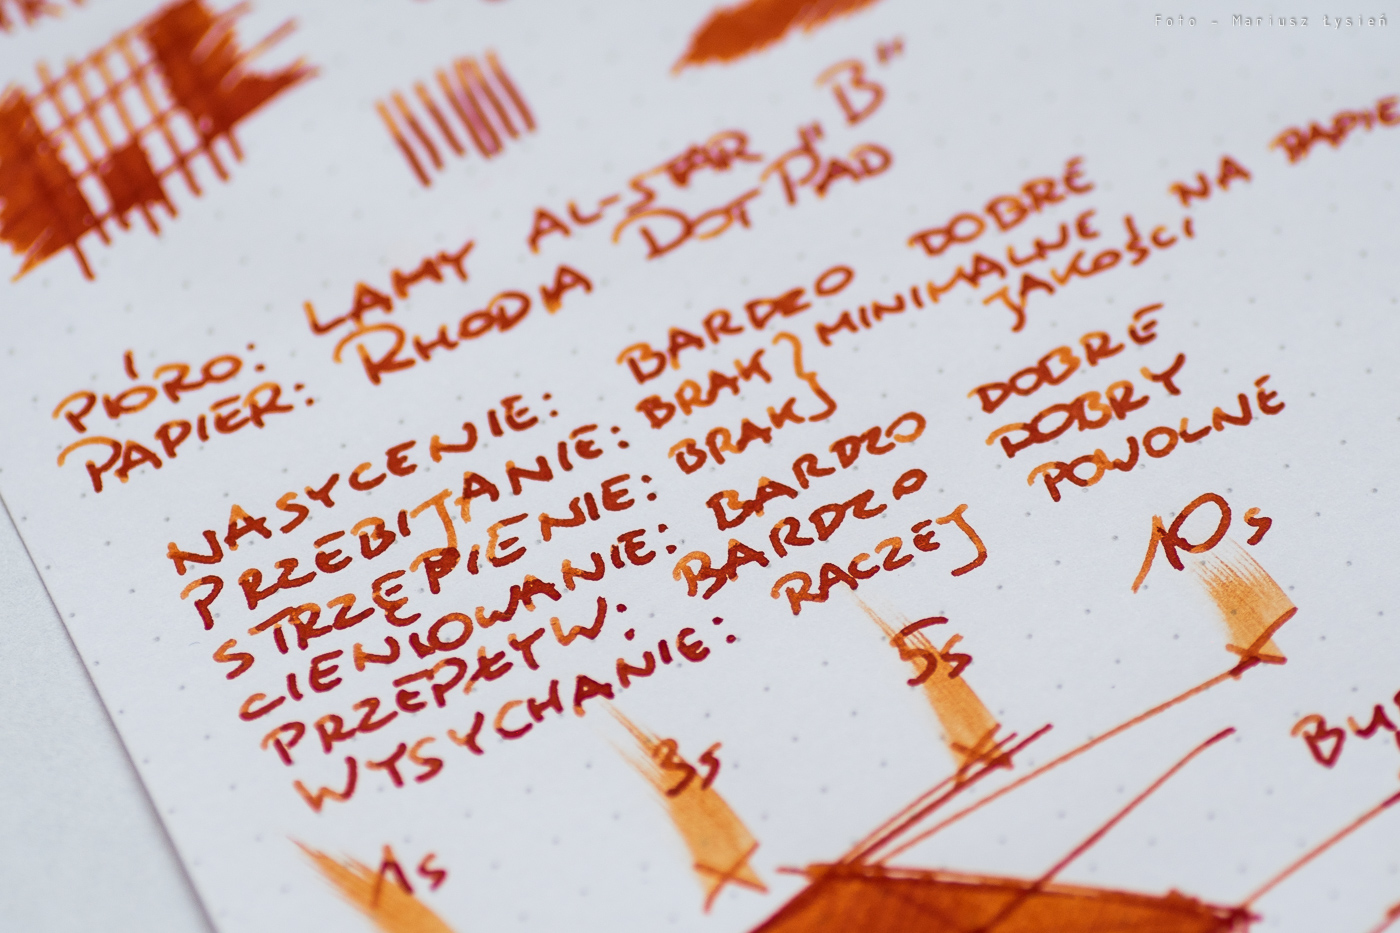 Foto - Mariusz Łysień
PIÓRO: LAMY AL-STAR "B"
PAPIER: RHODIA DOT PAD
NASYCENIE: BARDZO DOBRE
PRZEBIJANIE: BRAK } MINIMALNE NA
STRZĘPIENIE: BRAK } JAKOŚCI
CIENIOWANIE: BARDZO DOBRE
PRZEPŁYW: BARDZO DOBRY
WYSYCHANIE: RACZEJ POWOLNE
1s 3s 5s 10s